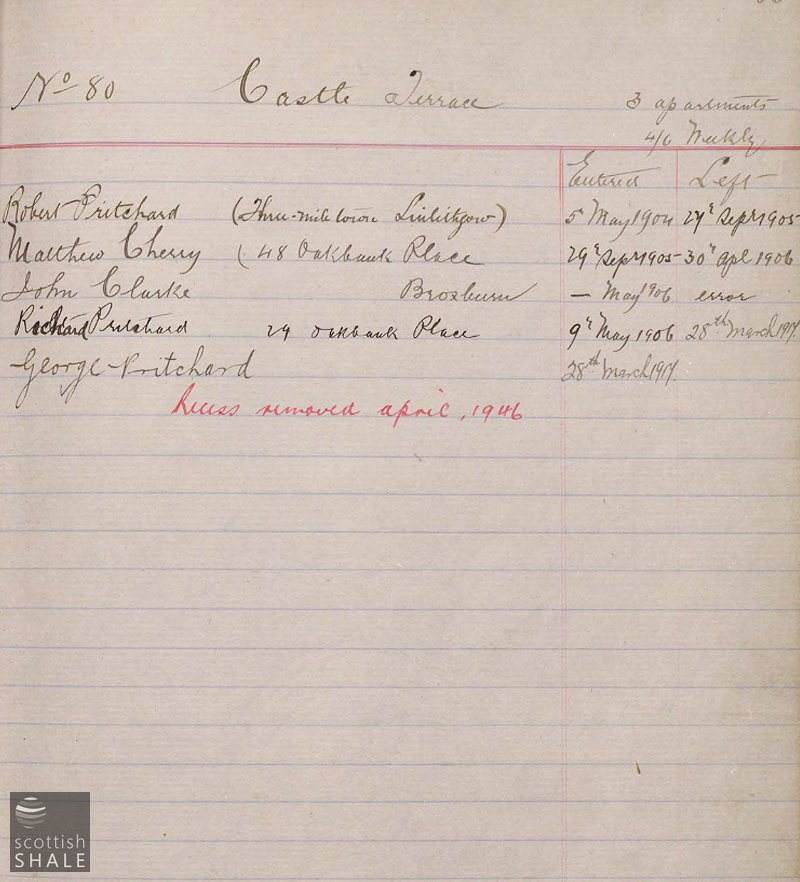 No 80 Castle Terrace 3 apartments
4/6 Weekly
Entered Left
Robert Pritchard (Three-mile town Linlithgow) 5 May 1904 29th Sepr 1905
Matthew Cherry ( 48 Oakbank Place 29th Sepr 1905 30th apl 1906
John Clarke Broxburn — May 1906 error
Richard Pritchard 29 Oakbank Place 9th May 1906 28th March 1917.
George Pritchard 28th March 1917.
Recess removed april, 1946
scottish
SHALE